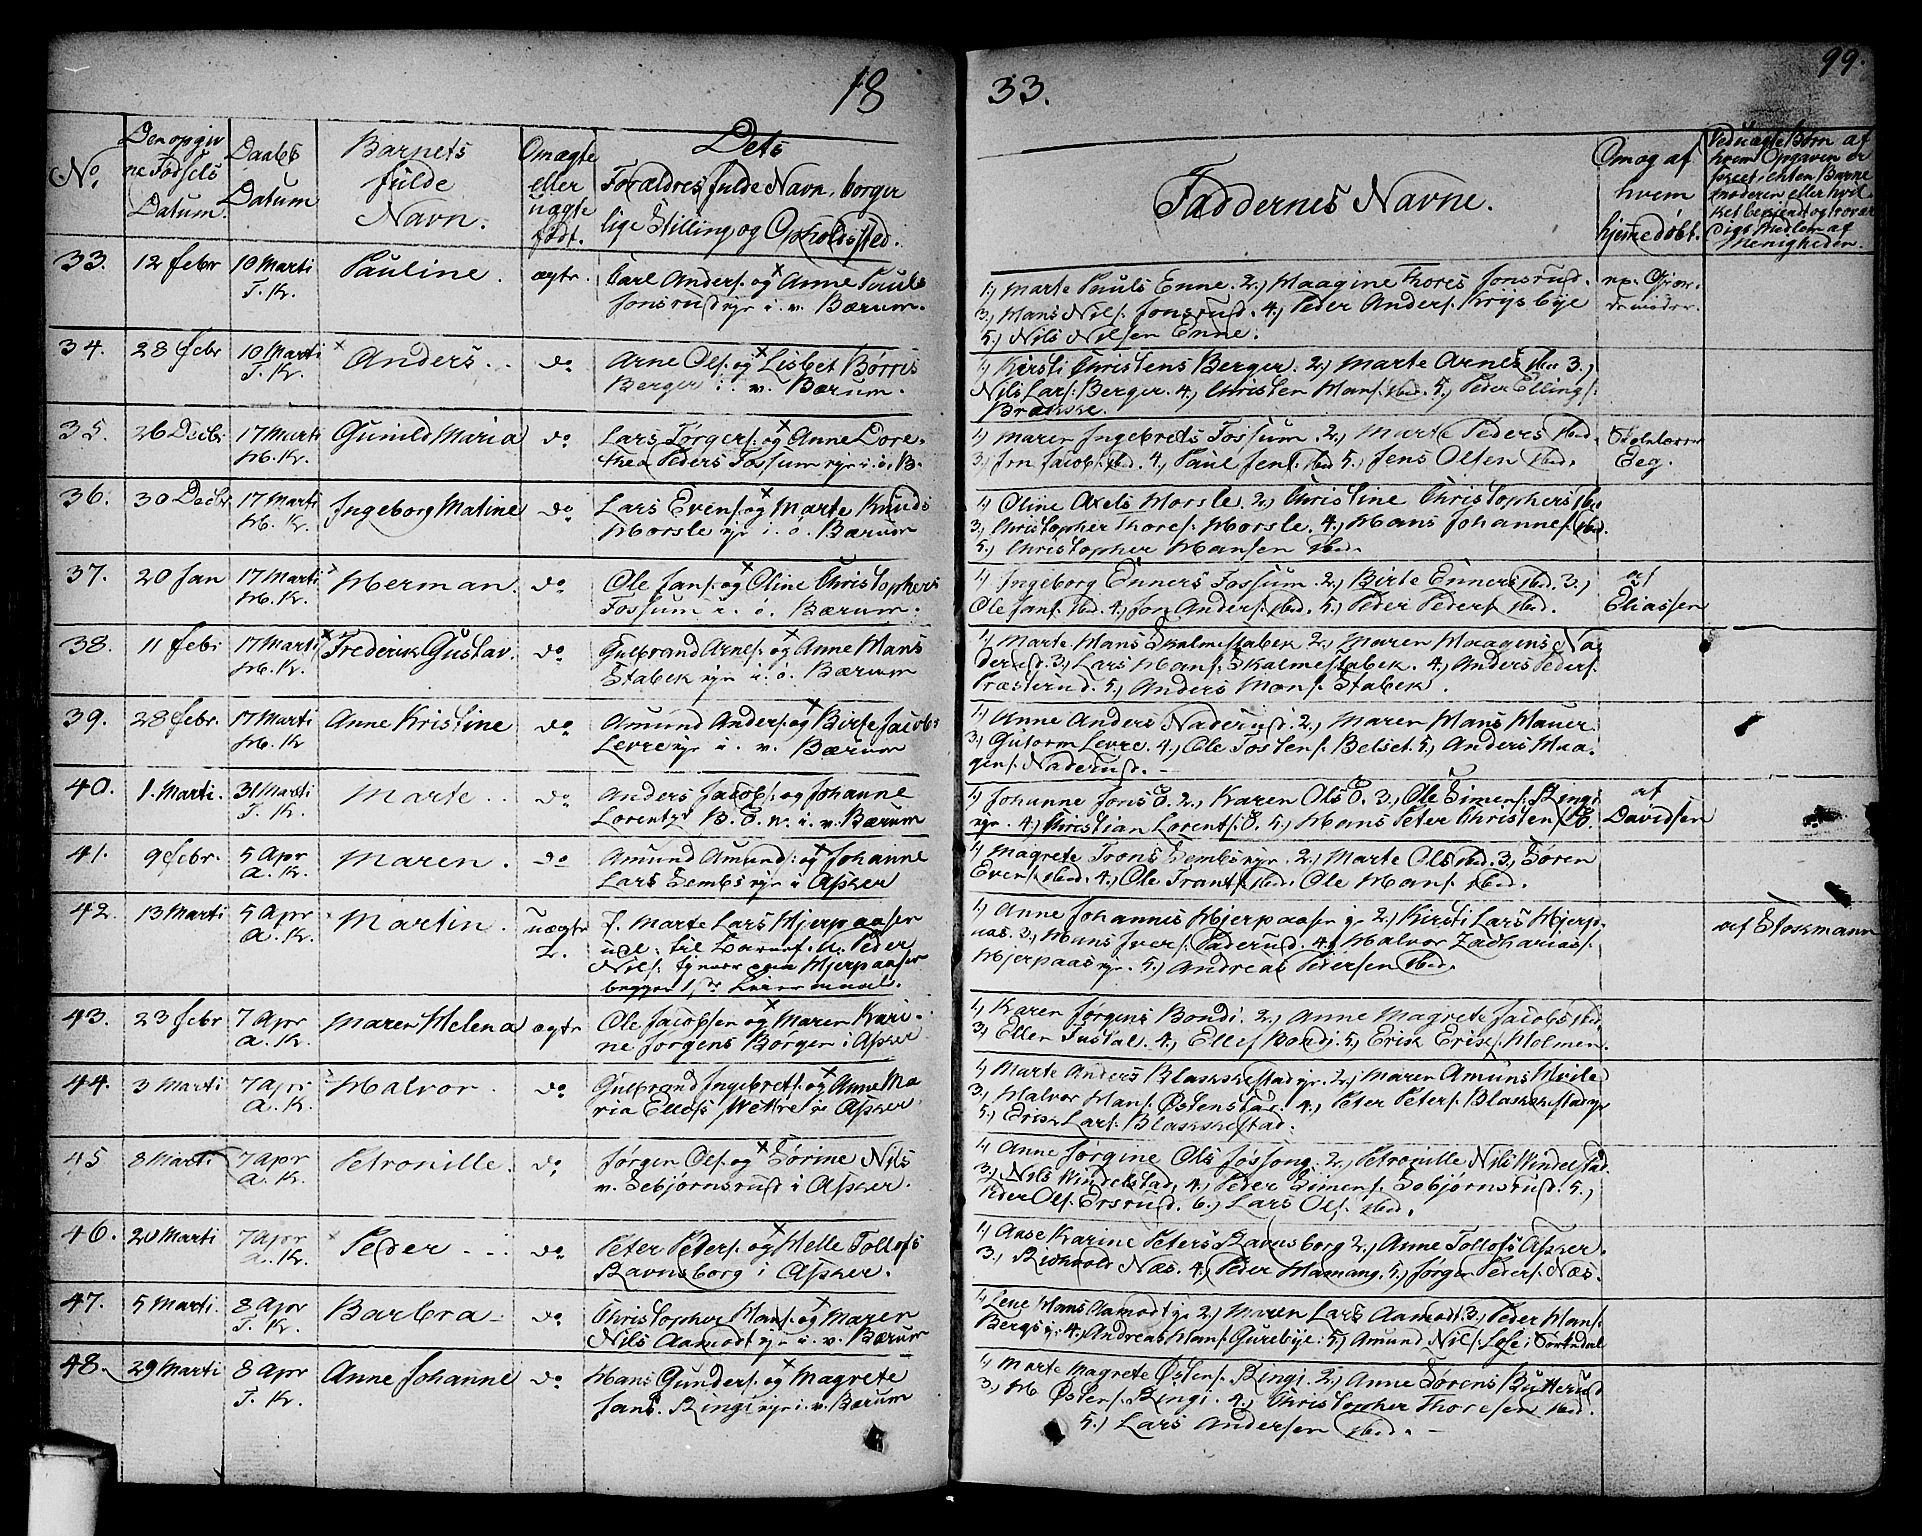 18
33.
99.
No.
Den opgiv
ne Fødsels
Datum.
Daabs
Datum
Barnets
fulde
Navn.
Om ægte
eller
uægte
født.
Dets
Forældres fulde Navn, borger
lige Stilling og Opholdsted.
Faddernes Navne.
Om og af
hvem
hjemedøbt.
Ved uægte Børn af
hvem Opgaven er
skeet, enten Barne
moderen eller hvil
ket bekjendt og trovær
digt Medlem af
Menigheden.
33. 12 febr 10 Marti Pauline. ægte. Carl Anders. og Anne Pauls
T. K. Jonsrud eje i. v. Bærum.
1, Marte Pauls Enne. 2., Maagine Thores Jonsrud.
3, Hans Nils. Jonsrud. 4, Peder Anders. Krysbye
5, Nils Nilsen Enne.
34. 28 febr 10 Marti Anders. do Arne Ols. og Lisbet Børris
T. K. Berger i. v. Bærum.
1, Kirsti Christens Berger. 2, Marte Arnes ibd 3.,
Nils Lars. Berger. 4, Christen Hans. ibd. 5, Peder Ellings.
35. 26 Decbr 17 Marti Gunild Maria do Lars Torgers. og Anne Dore-
H. K. thea Peders Fossum eje i. ø. B.
1, Maren Ingebrets Fossum. 2., Marte Peders ibd.
3, Jon Jacobs. ibd. 4, Paul Jens. ibd 5., Jens Olsen ibd.
Eeg.
36. 30 Decbr 17 Marti Ingeborg Matine do Lars Evens. og Marte Knuds
H. K. Horsle eje i. ø. Bærum
1, Oline Axels Horsle. 2, Christine Christophers ibd
3, Christopher Thores. Horsle. 4., Hans Johannes. ibd.
5., Christopher Hansen ibd.
37. 20 Jan 17 Marti Herman. do Ole Jans. og Oline Christophers
H. K. Fossum i. ø. Bærum.
1, Ingeborg Enners Fossum. 2., Birte Enners ibd. 3.,
Ole Jans. ibd. 4, Jon Anders. ibd. 5., Peder Peders. ibd.
af
Eliassen
38. 11 febr 17 Marti Frederik Gustav. do Gulbrand Arnes. og Anne Hans
H. K. Stabek eje i. ø. Bærum
1, Marte Hans Skalmestabek 2., Maren Haagens Na
derud. 3, Lars Hans. Skalmestabek. 4., Anders Peders.
Præsterud. 5, Anders Mons. Stabek.
39. 28 febr. 17 Marti Anne Kristine do Amund Anders. og Birte Jacobs
H. K. Levre eje i. v. Bærum
1, Anne Anders Naderud. 2., Maren Hans Hauer
3, Gutorm Levre. 4, Ole Tostens. Belset. 5, Anders Haa-
gens. Naderud.
40. 1. Marti. 31 Marti Marte do Anders Jacobs. og Johanne
T. K. Lorentz. B. Ö. V. i. v. Bærum
1, Johanne Jons Ö. 2., Karen Ols Ö. 3, Ole Simens. Ringi
eje. 4., Christian Lorents. Ö. 5., Hans Peter Christens. B.
af
Davidsen
41. 9 febr. 5 Apr Maren. do Amund Amunds. og Johanne
A. K. Lars Sembs eje i Asker
1, Magrete Trons Sembs eje. 2., Marte Ols ibd. 3, Søren
Evens. ibd. 4., Ole Trants. ibd. Ole Hans. ibd.
42. 13 Marti 5 Apr Martin. uægte
A. K. 2. P. Marte Lars Hjerpaasen
udl. til Barnef. U. Peder
Nils. tjener paa Hjerpaasen
begges 1ste Leiermaal.
1, Anne Johannes Hjerpaasen eje 2., Kirsti Lars Hjerp-
aas. 3, Hans Ivers. Paderud. 4., Halvor Zacharias.
Hjerpaas eje. 5., Andreas Pedersen ibd.
af Stokmann
43. 23 febr 7 Apr Maren Helena ægte Ole Jacobsen og Maren Kari-
A. K. ne Jørgens Borgen i Asker.
1, Karen Jørgens Bondi. 2., Anne Magrete Jacobs ibd.
3, Ellen Tustal. 4, Ellef Bondi. 5, Erik Eriks. Holmen.
44. 3 Marti 7 Apr Halvor. do Gulbrand Ingebrets. og Anne Ma
A. K. ria Ellefs Nettre i Asker
1, Marte Anders Blakkestad eje. 2., Maren Amuns Hvile
3., Halvor Hans. Østenstad. 4., Peter Peters. Blakkestad eje
5, Erik Lars. Blakkestad.
45 8 Marti 7 Apr Petronille. do Jørgen Ols. og Sørine Nils
A. K. v. Sebjørnsrud i Asker.
1, Anne Jørgine Ols Jøssong. 2., Petronille Nils Windelstad.
3, Nils Windelstad. 4., Peder Simens. Sebjørnsrud. 5.,
Peder Ols. Ersrud. 6., Lars Ols. ibd.
46. 20 Marti 7 Apr Peder. do Peter Peders. og Helle Tollofs
A. K. Ravnsborg i Asker.
1., Aase Karine Peters Ravnsborg 2., Anne Tollofs Asker.
3., Rishvold Næs. 4., Peder Hamang. 5., Jørgen Peders. Næs.
47. 5 Marti. 8 Apr Barbra do Christopher Hans. og Maren
T. K. Nils Aamodt eje i. v. Bærum
1, Lene Hans Aamodt eje 2., Maren Lars Aamodt. 3., Peder Hans.
Bergs e; 4, Andreas Hans. Gurebye; 5, Amund Nils. Løse i Sørkedal
48. 29 Marti 8 Apr Anne Johanne do Hans Gunders. og Magrete
T. K. Jans. Ringi eje i. v. Bærum
1, Marte Magrete Østens. Ringi. 2, Anne Sørens Butterud
3., H Østens. Ringi. 4., Christopher Thoresen ibd.
5., Lars Andersen ibd.